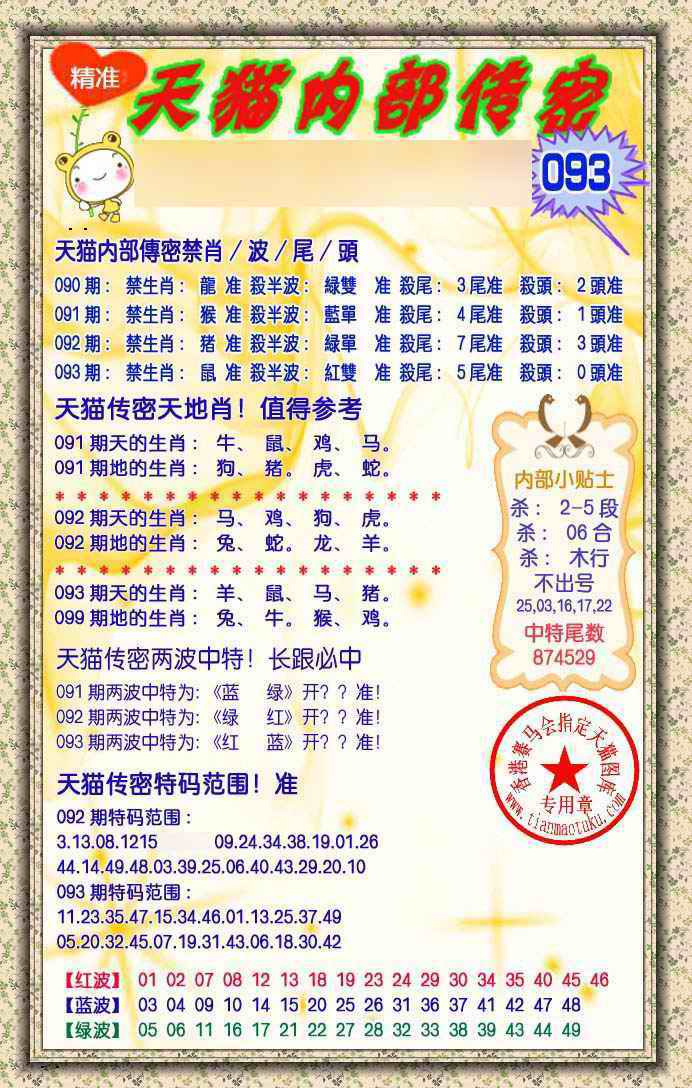 精准
天猫内部传密
093
天猫内部傳密禁肖／波／尾／頭
090期： 禁生肖： 龍 准 殺半波： 綠雙 准 殺尾： 3尾准 殺頭： 2頭准
091期： 禁生肖： 猴 准 殺半波： 藍單 准 殺尾： 4尾准 殺頭： 1頭准
092期： 禁生肖： 猪 准 殺半波： 綠單 准 殺尾： 7尾准 殺頭： 3頭准
093期： 禁生肖： 鼠 准 殺半波： 紅雙 准 殺尾： 5尾准 殺頭： 0頭准
天猫传密天地肖！值得参考
091期天的生肖： 牛、 鼠、 鸡、 马。
091期地的生肖： 狗、 猪。 虎、 蛇。
* * * * * * * * * * * * * * * * * *
092期天的生肖： 马、 鸡、 狗、 虎。
092期地的生肖： 兔、 蛇。 龙、 羊。
* * * * * * * * * * * * * * * * * *
093期天的生肖： 羊、 鼠、 马、 猪。
099期地的生肖： 兔、 牛。 猴、 鸡。
内部小贴士
杀： 2-5段
杀： 06合
杀： 木行
不出号
25,03,16,17,22
中特尾数
874529
天猫传密两波中特！长跟必中
091期两波中特为:《蓝 绿》开？？准！
092期两波中特为:《绿 红》开？？准！
093期两波中特为:《红 蓝》开？？准！
香港赛马会指定天猫图库
专用章
www.tianmaotuku.com
天猫传密特码范围！准
092期特码范围：
3.13.08.1215 09.24.34.38.19.01.26
44.14.49.48.03.39.25.06.40.43.29.20.10
093期特码范围：
11.23.35.47.15.34.46.01.13.25.37.49
05.20.32.45.07.19.31.43.06.18.30.42
【红波】 01 02 07 08 12 13 18 19 23 24 29 30 34 35 40 45 46
【蓝波】 03 04 09 10 14 15 20 25 26 31 36 37 41 42 47 48
【绿波】 05 06 11 16 17 21 22 27 28 32 33 38 39 43 44 49